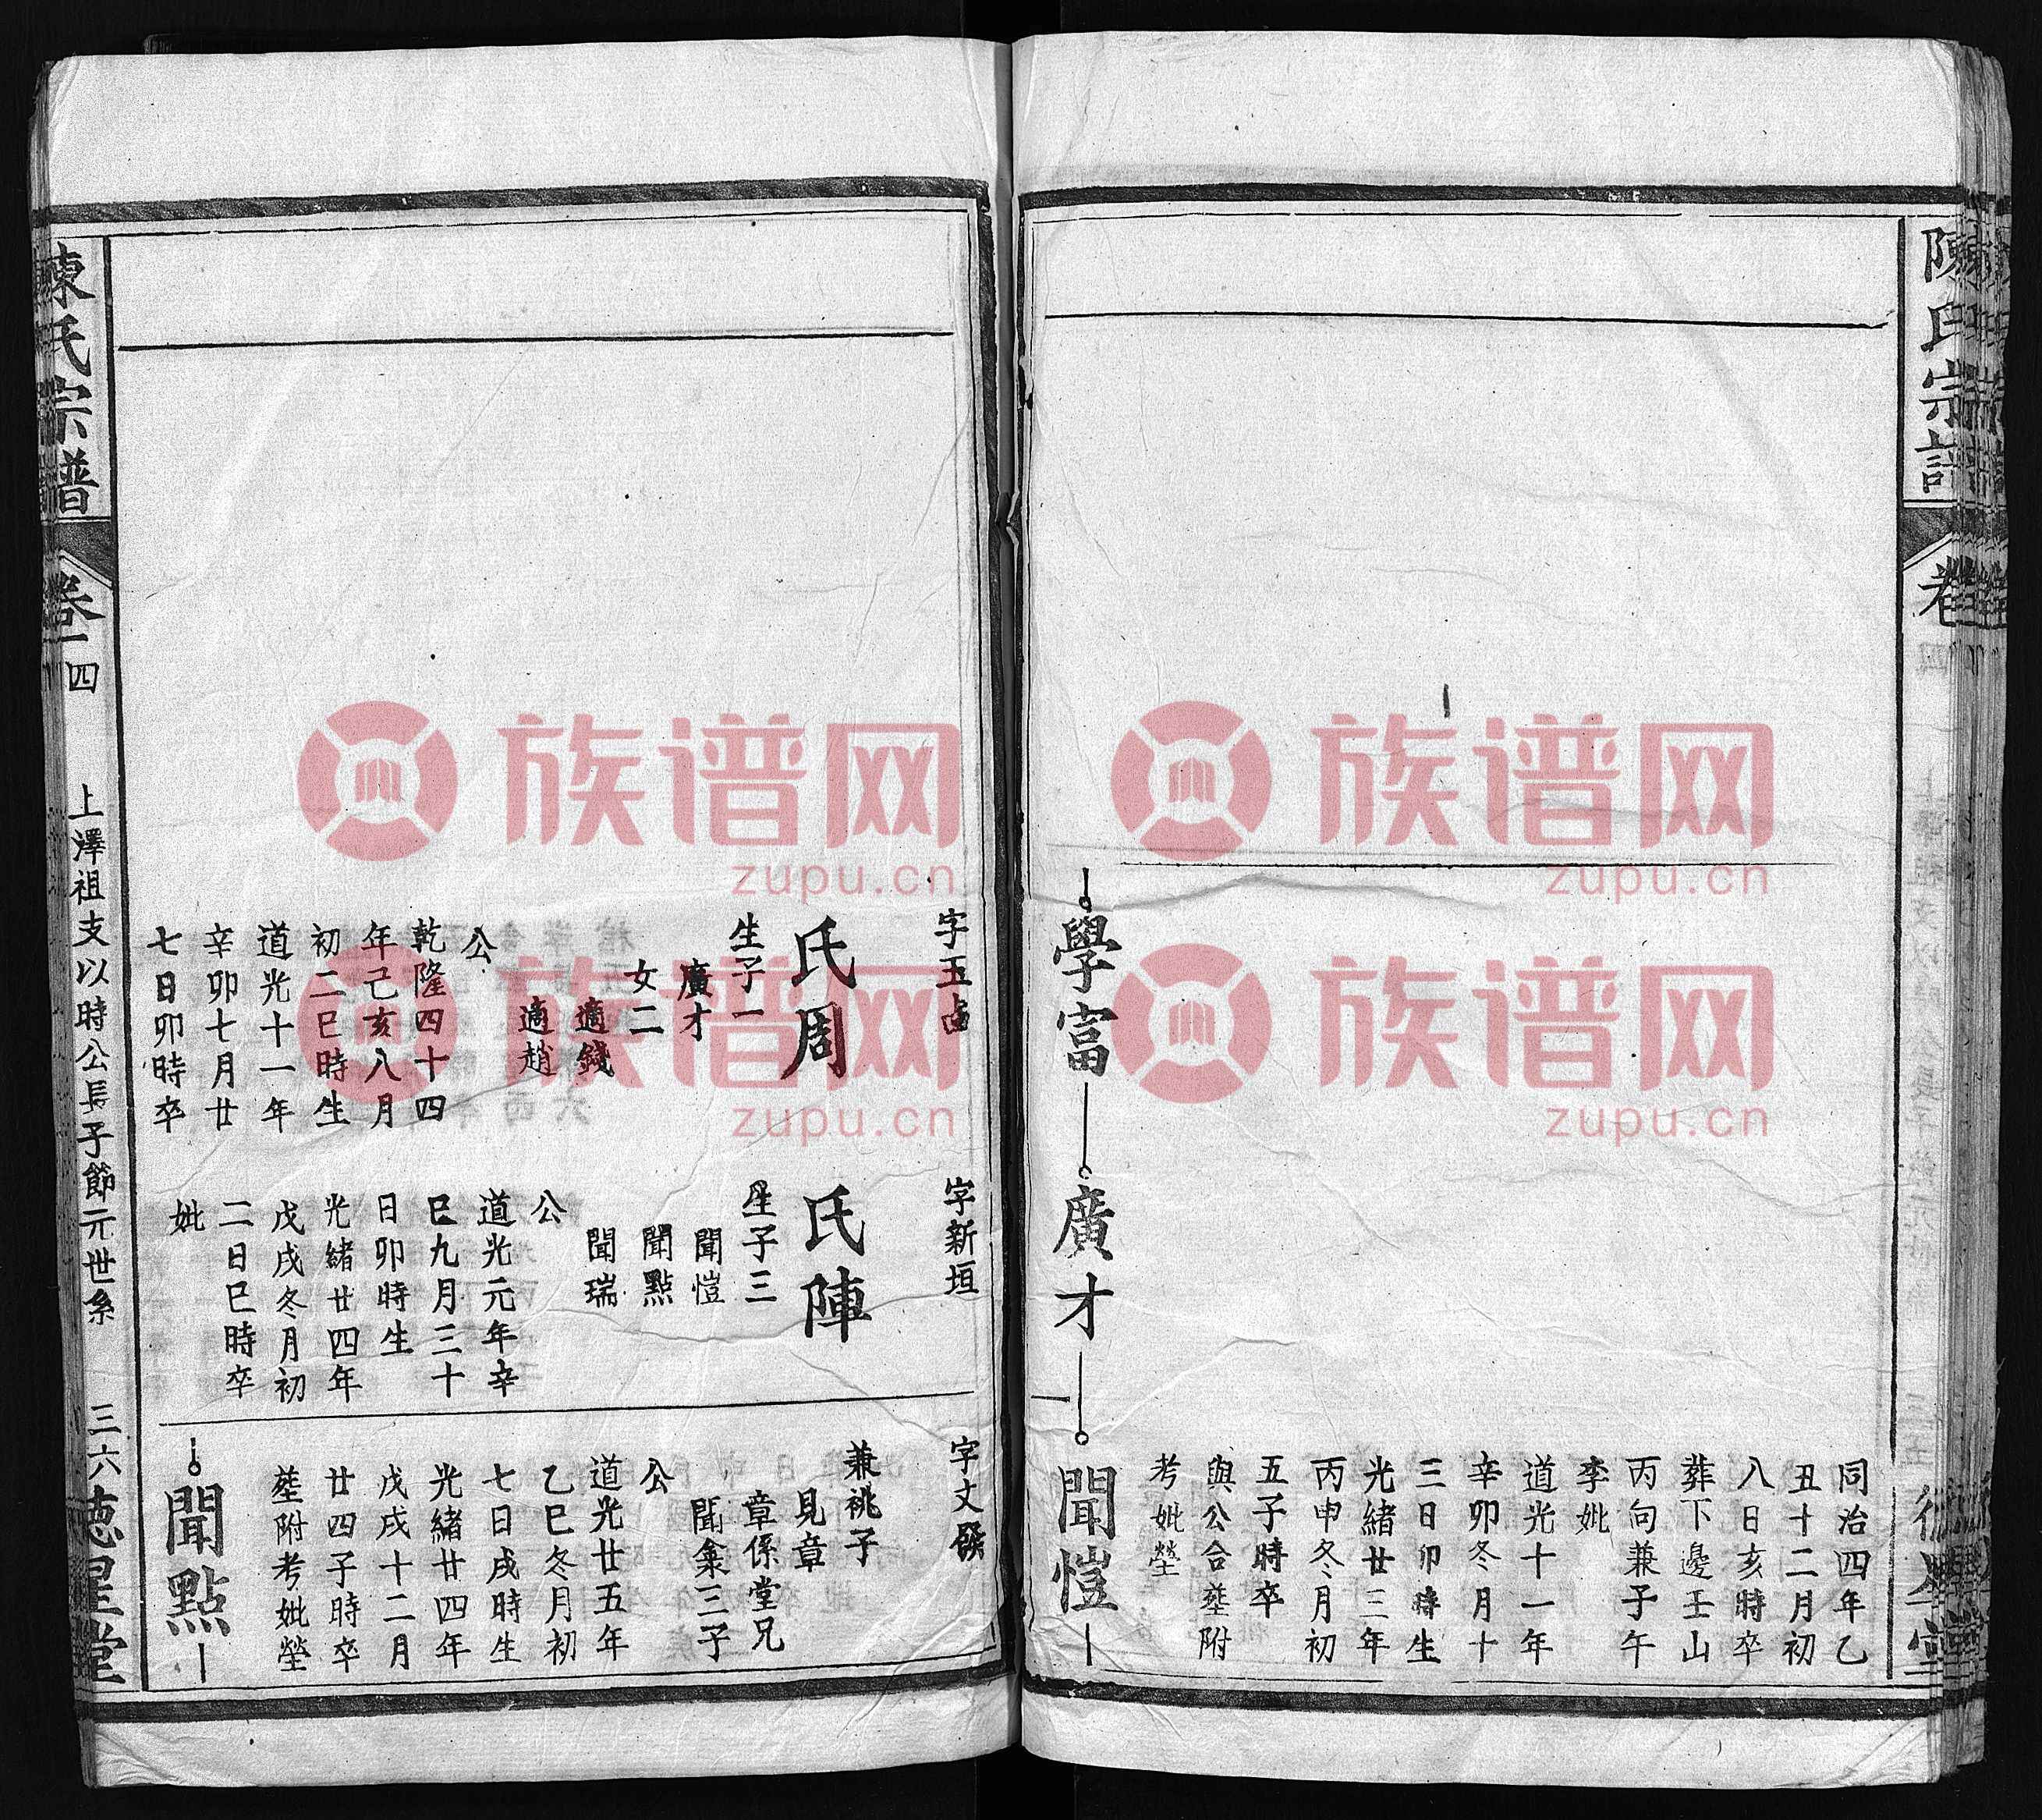 陳氏宗譜
卷
同治四年乙
丑十二月初
八日亥時卒
葬下邊壬山
丙句兼子午
李妣
道光十一年
辛卯冬月十
三日卯時生
光緒廿三年
丙申冬月初
五子時卒
與公合塟附
考妣塋
學富
廣才
聞愷
字玉
氏周
生子一
廣才
女二
適錢
適趙
公
乾隆四十四
年己亥八月
初二巳時生
道光十一年
辛卯七月廿
七日卯時卒
字新垣
氏陣
生子三
聞愷
聞點
聞瑞
公
道光元年辛
巳九月三十
日卯時生
光緒廿四年
戊戌冬月初
二日巳時卒
妣
字文
兼祧子
見章
章係堂兄
聞彙三子
公
道光廿五年
乙巳冬月初
七日戌時生
光緒廿四年
戊戌十二月
廿四子時卒
塟附考妣塋
聞點
陳氏宗譜
卷一四
上澤祖支以時公長子節元世系
三六
德星堂
族谱网
zupu.cn
族谱网
zupu.cn
族谱网
zupu.cn
族谱网
zupu.cn